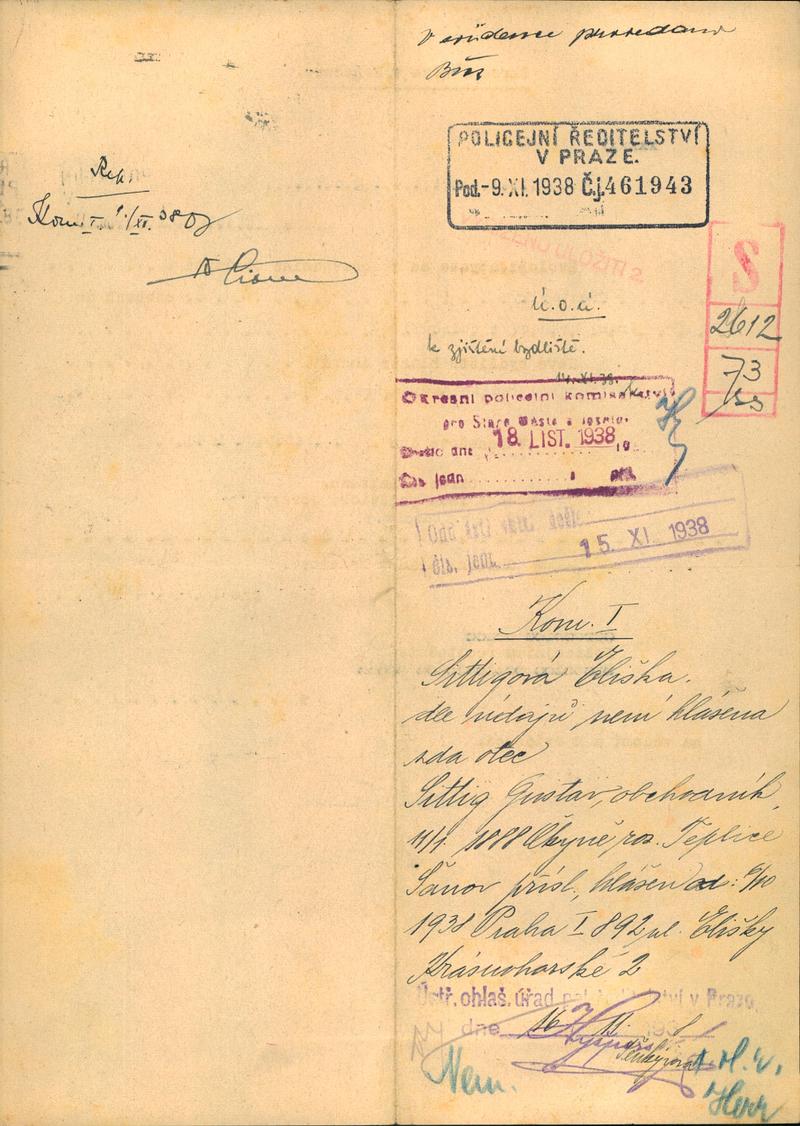 V evidence provedeno
Rich.
Kom. I
POLICEJNÍ ŘEDITELSTVÍ
V PRAZE.
Pod. -9. XI. 1938 Č.j. 461943
ULOŽITI 2
S
2612
73
ú.o.ú.
k zjištění bydliště.
14. XI. 38.
Okresní policejní komisařství
pro Staré město a Josefov
18. LIST. 1938
Čís. jedn.
15. XI. 1938
čís. jedn.
Kom. I
Sittigová Eliška.
dle údajů není hlášena
zda otec
Sittig Gustav, obchodník,
11/1 1888 Čkyně, roz. Teplice
Šanov přísl., hlášen od: 6/10
1938 Praha I 892 ul. Elišky
Krásnohorské 2
Ústř. ohlaš. úřad pol. ředitelství v Praze
dne 16 11 1938
Nem.
Herr